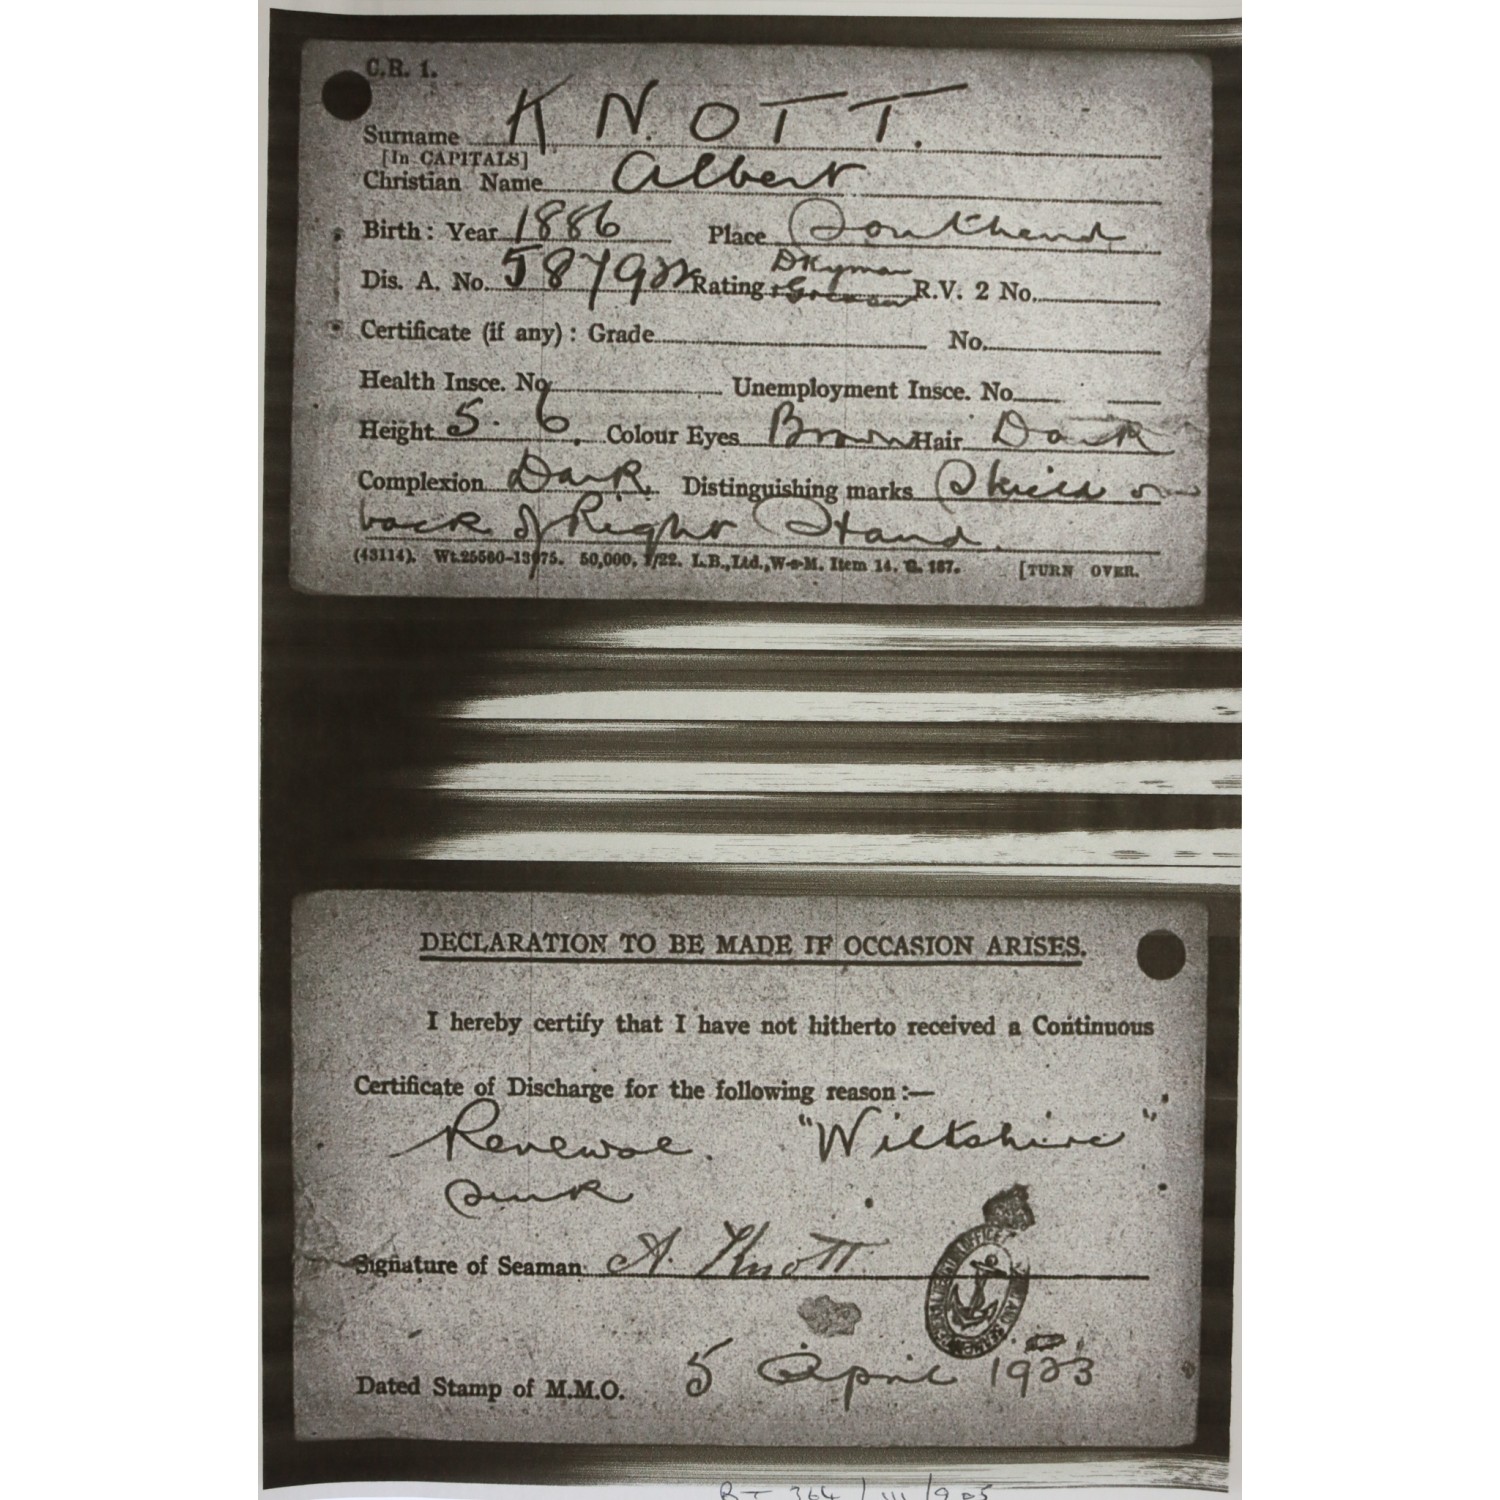 C.R. 1.
Surname KNOTT.
[In CAPITALS]
Christian Name Albert
Birth: Year 1886 Place Southend
Dis. A. No. Rating Dkyman R.V. 2 No.
Certificate (if any): Grade No.
Health Insce. No. Unemployment Insce. No.
Height 5. 6. Colour Eyes Brown Hair Dark
Complexion Dark. Distinguishing marks Shield on
back of Right Hand.
(43114). Wt.25560-1375. 50,000. 1/22. L.B., Ltd., W-o-M. Item 14. G. 187. [TURN OVER.
DECLARATION TO BE MADE IF OCCASION ARISES.
I hereby certify that I have not hitherto received a Continuous
Certificate of Discharge for the following reason:—
Renewal. "Wiltshire"
Sunk
Signature of Seaman A. Knott
Dated Stamp of M.M.O. 5 April 1923